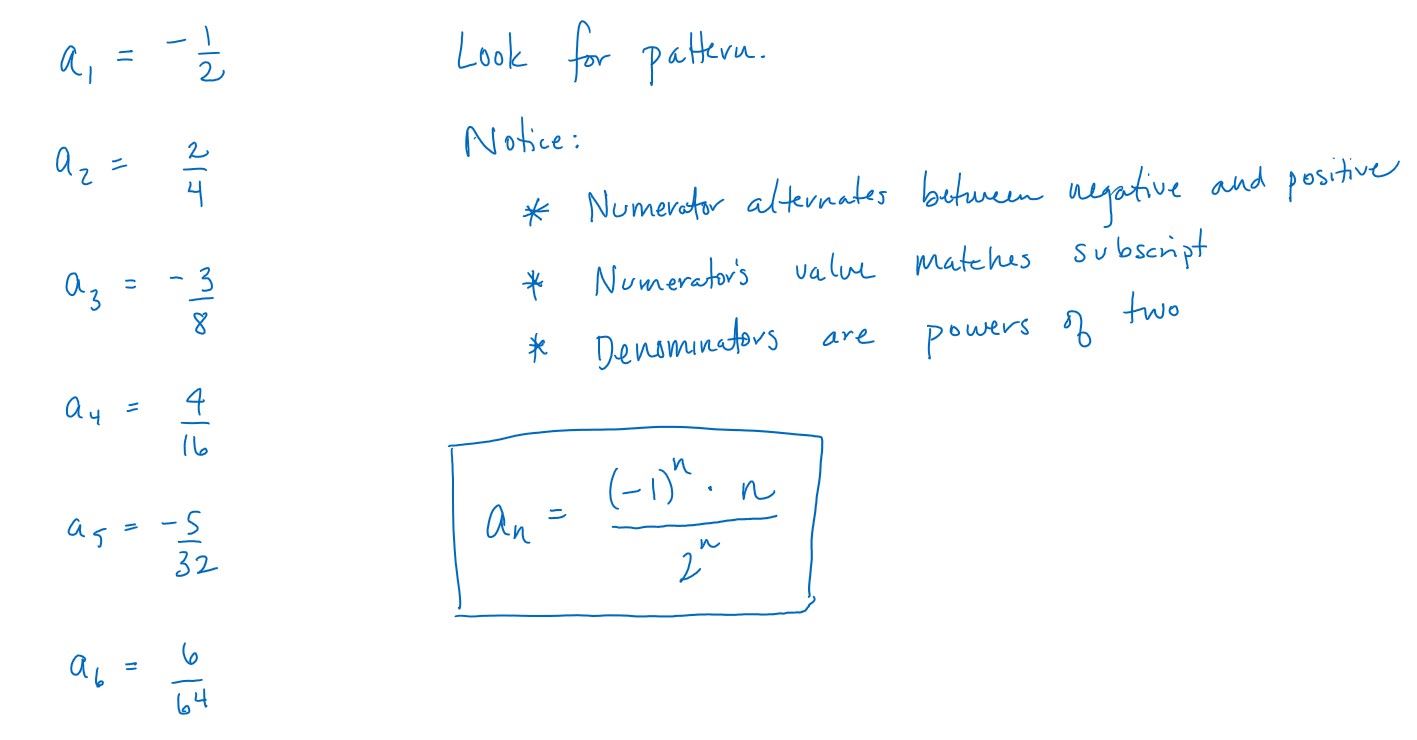 a₁ = -1/2
a₂ = 2/4
a₃ = -3/8
a₄ = 4/16
a₅ = -5/32
a₆ = 6/64
Look for pattern.
Notice:
* Numerator alternates between negative and positive
* Numerator's value matches subscript
* Denominators are powers of two
aₙ = (-1)ⁿ · n / 2ⁿ